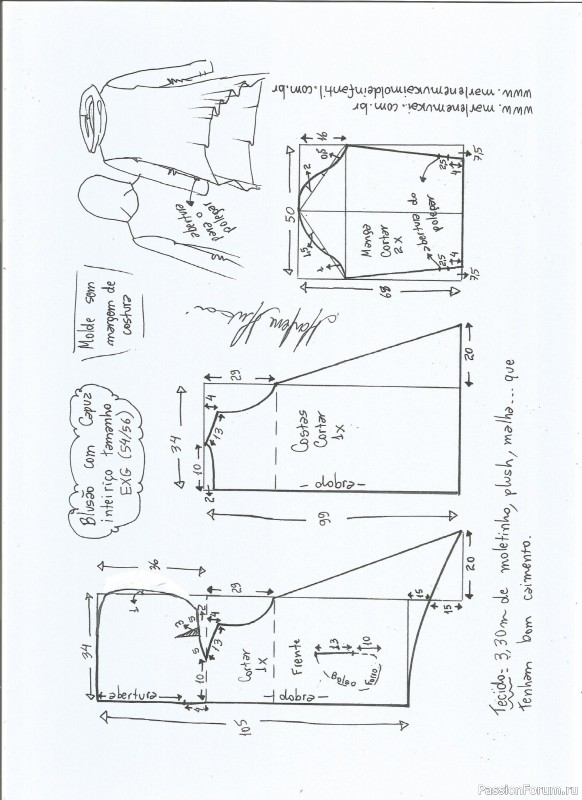 Blusão com Capuz
inteiriço tamanho
EXG (54/56)
Molde sem
margem de
costura
abertura
para o
polegar
www.marlenemukai.com.br
www.marlenemukaimoldeinfantil.com.br
34
36
1
abertura
10
4
5
3
5
2
4
13
29
Cortar
1x
Frente
dobra
13
10
Bolso
Forro
15
15
20
105
34
10
2
13
4
29
Costas
Cortar
1x
dobra
66
20
50
16
2
0,5
1,5
2
Manga
Cortar
2x
abertura do
polegar
2,5
4
7,5
2,5
4
7,5
68
Tecido= 3,30m de moletinho, plush, malha... que
tenham bom caimento.
PassionForum.ru